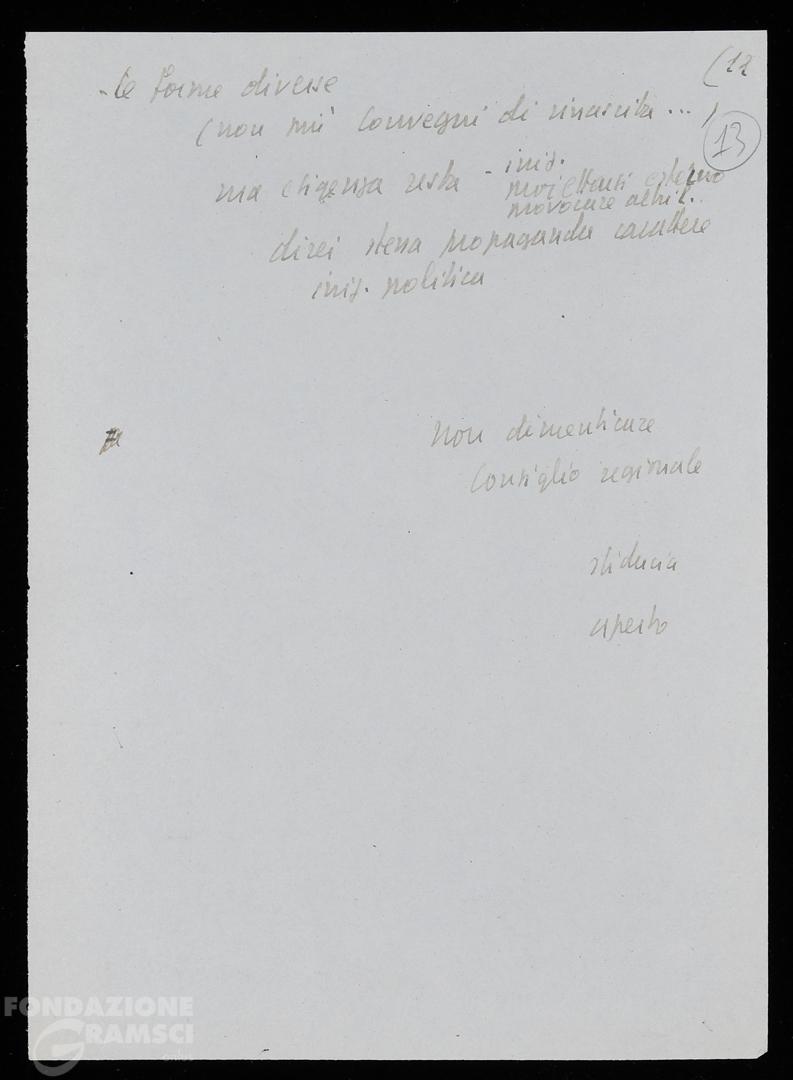 (12
- le forme diverse
(non più convegni di rinascita ...)
13
ma esigenza resta - iniz.
proiettarsi esterno
provocare
direi stessa propaganda carattere
iniz. politica
non dimenticare
Consiglio regionale
sfiducia
aperto
FONDAZIONE
GRAMSCI
onlus